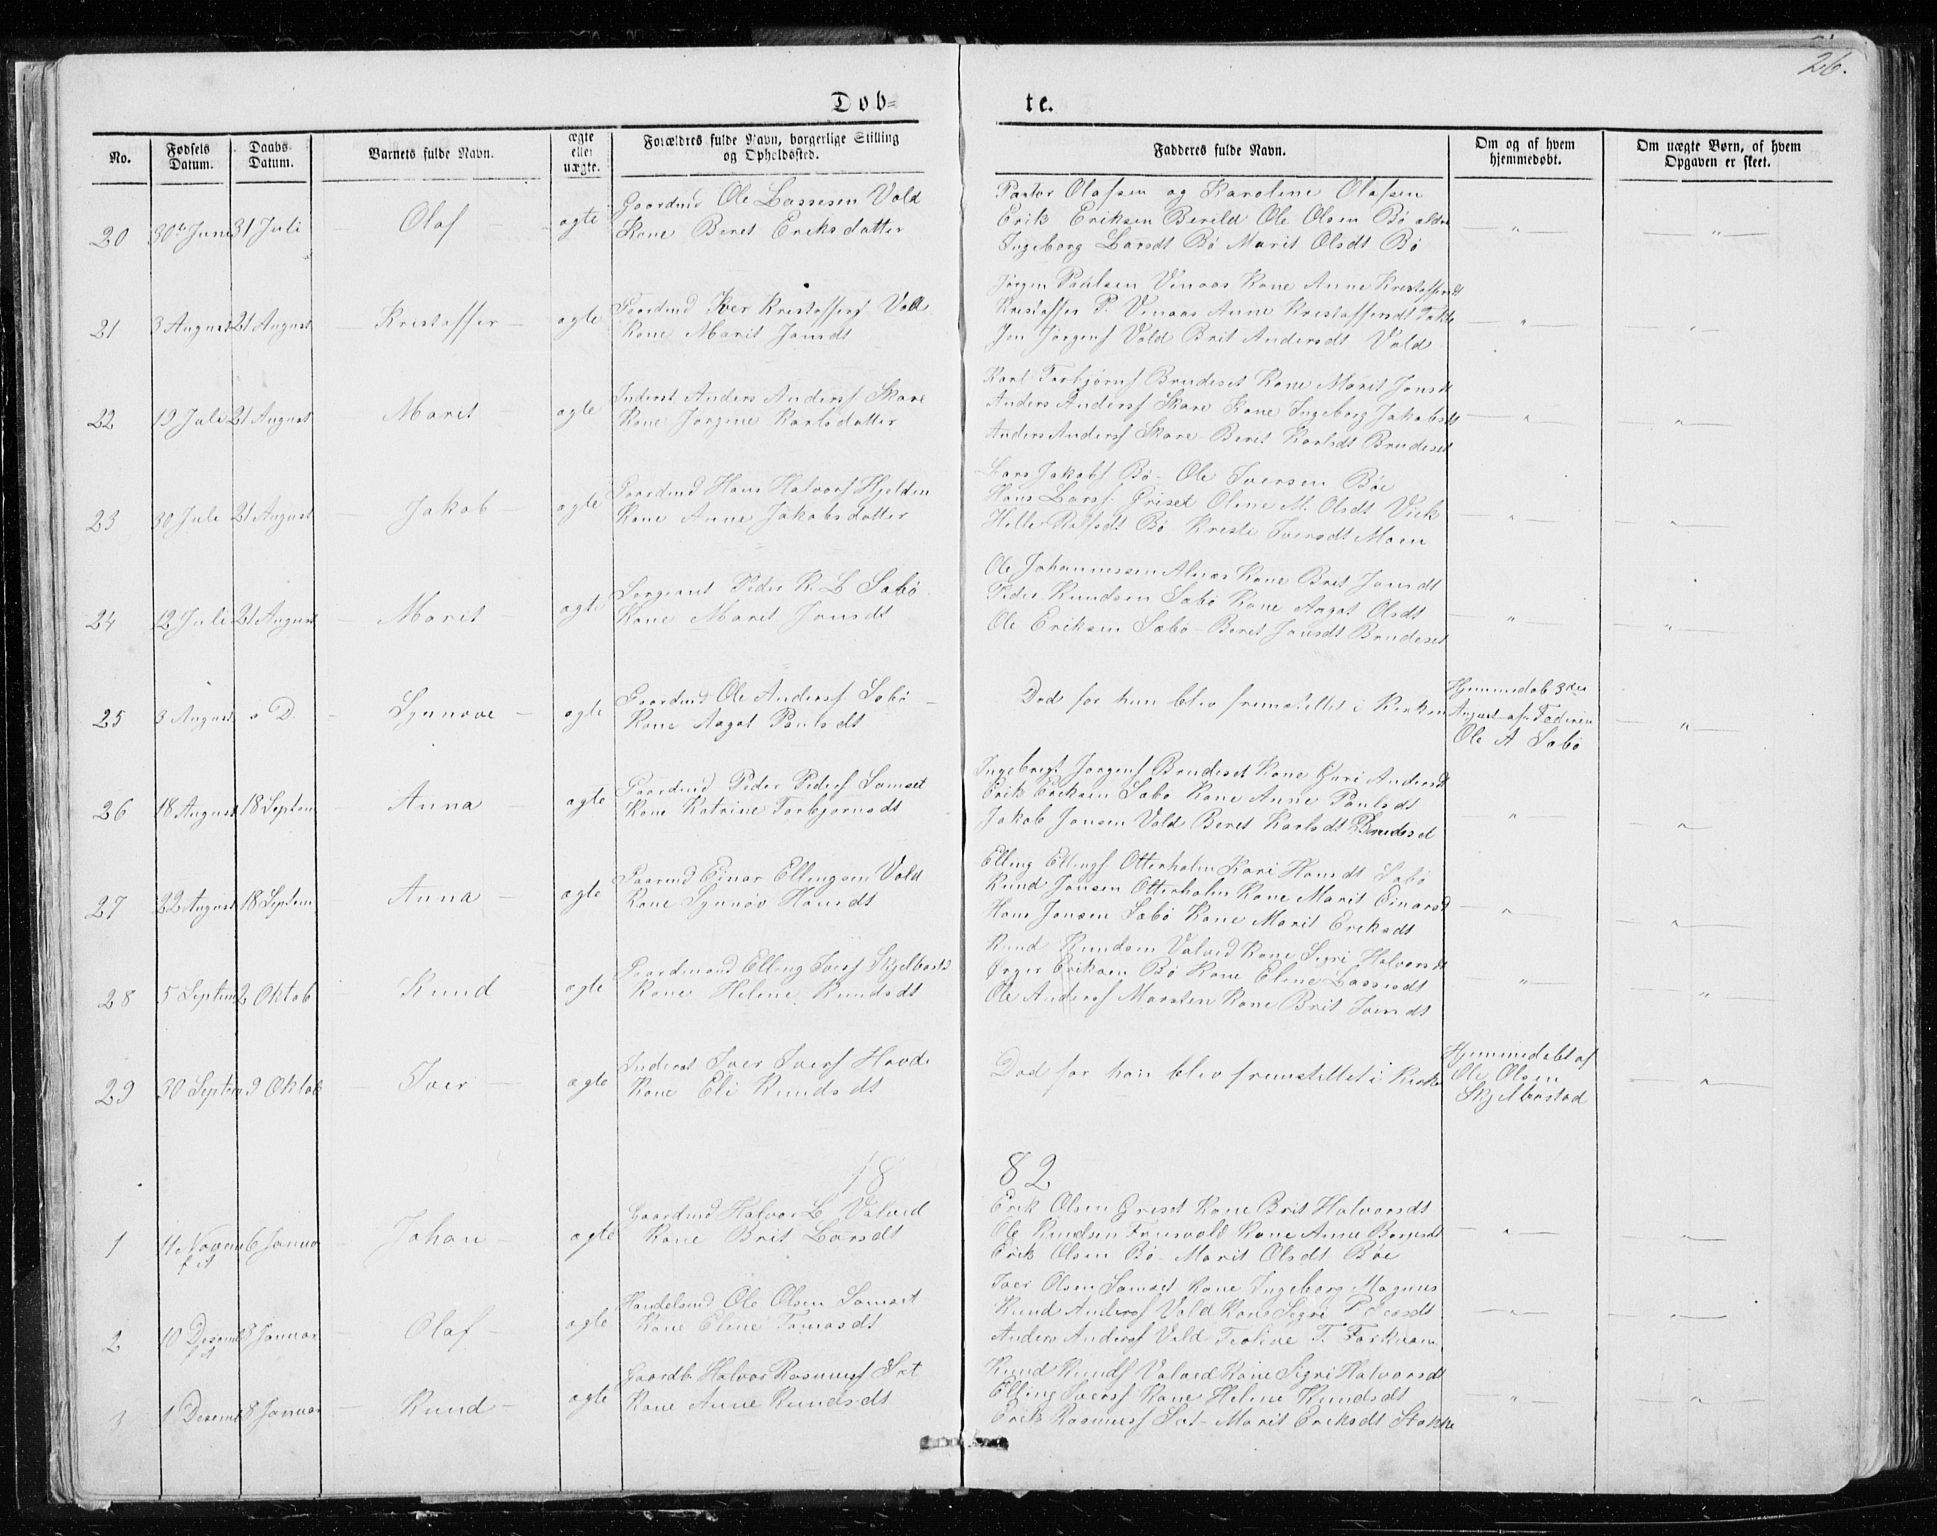 26.
Døb=
te.
No.
Fødsels Datum.
Daabs Datum.
Barnets fulde Navn.
ægte eller uægte.
Forældres fulde Navn, borgerlige Stilling og Opholdssted.
Faddernes fulde Navn.
Om og af hvem hjemmedøbt.
Om uægte Børn, af hvem Opgaven er skeet.
20 30te Juni 31 Juli Olaf ægte
Gaardmd Ole Lassesen Vold
Kone Beret Eriksdatter
Pastor Olafsen og Karoline Olafsen
Erik Eriksen Bereld Ole Olsen Bø
Ingeborg Larsdt Bø Marit Olsdt Bø
21 3 August 21 August Kristoffer ægte
Gaardmd Iver Kristoffers Vold
Kone Marit Jonsdt
Jørgen Paulsen Venaas Kone Anne Kristoffersdt
Kristoffer P. Venaas Anne Kristoffersdt
Jon Jørgens Vold Brit Andersdt Vold
22 19 Juli 21 August Marit ægte
Inderst Anders Anders Skare
Kone Jørgine Karlsdatter
Karl Torbjørns Brudeset Kone Marit Jonsdt
Anders Anders Skare Kone Ingeborg Jakobsdt
Anders Anders Skare Beret Karlsdt Brudeset
23 30 Juli 21 August Jakob ægte
Gaardmd Hans Halvors Hjelden
Kone Anne Jakobsdatter
Lars Jakobs Bø Ole Iversen Bøe
Hans Lars Griset Oline M. Olsdt Vik
Kristi Iversdt Moen
24 12 Juli 21 August Marit ægte
Sergeant Peder K. L Sæbø
Kone Marit Jonsdt
Ole Johannessen Alnæs Kone Brit Jonsdt
Peder Knudsen Sæbø Kone Aagot Olsdt
Ole Eriksen Sæbø Beret Jonsdt Brudeset
25 3 August s D. Synnove ægte
Gaardmd Ole Anders Sæbø
Kone Aagot Paulsdt
Død før hun blev fremstillet i Kirken
Hjemmedøb 3die
August af Faderen
Ole A Sæbø
26 18 August 18 Septem Anna ægte
Gaardmd Peder Peders Samset
Kone Katrine Torbjørnsdt
Ingebrigt Jørgens Brudeset Kone Guri Andersdt
Erik Eriksen Sæbø Kone Anne Paulsdt
Jakob Jonsen Vold Beret Karlsdt Brudeset
27 22 August 18 Septem Anna ægte
Gaarmd Einar Ellingsen Vold
Kone Synnøv Hansdt
Elling Ellings Otterholm Kari Hansdt Sæbø
Knud Jonsen Otterholm Kone Marit Einarsd
Hans Jonsen Sæbø Kone Marit Eriksdt
28 5 Septem 2 Oktob Knud ægte
Gaardmand Elling Ivers Skjelbostd
Kone Helene Knudsdt
Knud Knudsen Valved Kone Sigri Halvorsdt
Eriksen Bø Kone Elene Lassesdt
Ole Anders Marsten Kone Brit Iversdt
29 30 Septem 9 Oktob Iver ægte
Inderst Iver Ivers Hovde
Kone Eli Knudsdt
Død før han blev fremstillet i Kirke
Hjemmedøbt af
Ole Olsen
Skjelbostad
18 82
1 4 Novem 6 Januar Johan ægte
f. A
Gaardmd Halvor L Valved
Kone Brit Larsdt
Erik Olsen Griset Kone Brit Halvorsdt
Ole Knudsen Kone Anne
Erik Olsen Bø Marit Olsdt Bøe
2 10 Desemb 8 Januar Olaf ægte
f A
Handelsmd Ole Olsen Samset
Kone Elene Tomasdt
Iver Olsen Samset Kone Ingeborg Magnus
Knud Anders Vold Kone Sigri
Anders Anders Vold
3 1 Desemb 8 Januar Knud ægte
Gaardb Halvor Rasmuss Sæt
Kone Anne Knudsdt
Knud Knuds Valved Kone Sigri Halvorsdt
Elling Ivers Kone Helene Knudsdt
Erik Rasmuss Sæt Marit Eriksdt Stokke